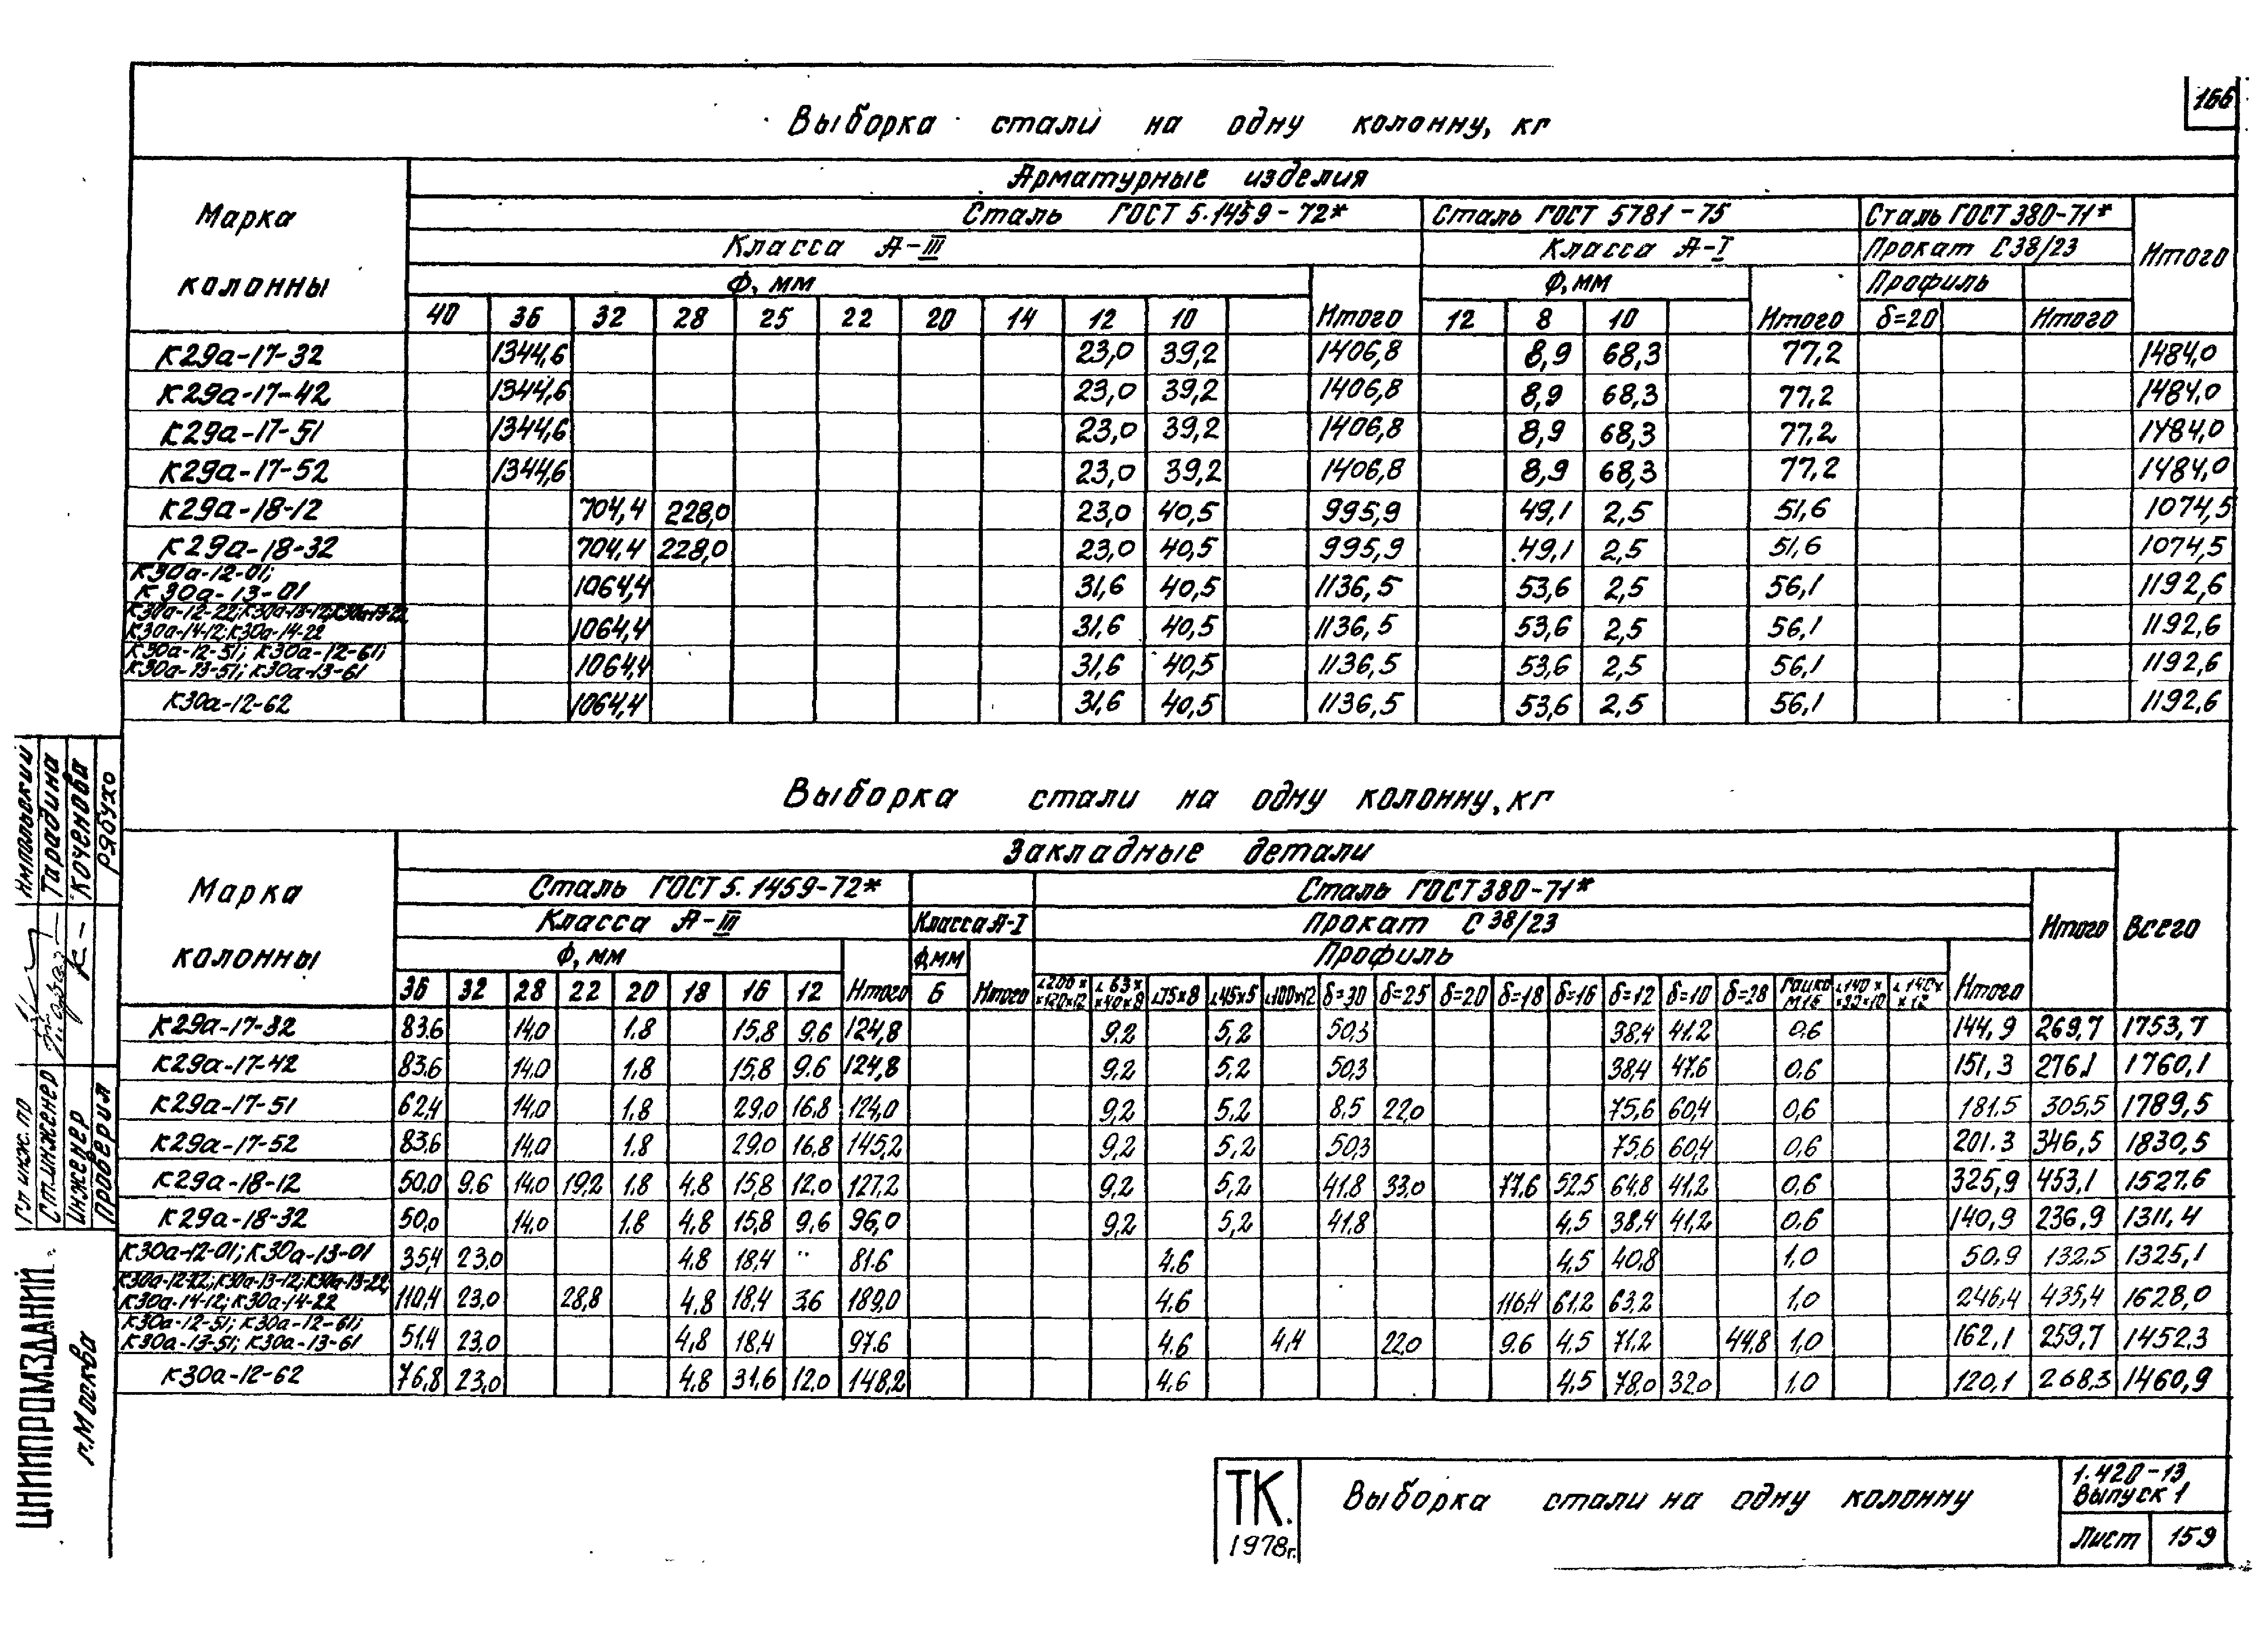 166
Выборка стали на одну колонну, кг
Марка колонны
Арматурные изделия
Сталь ГОСТ 5.1459-72* Сталь ГОСТ 5781-75 Сталь ГОСТ 380-71* Итого
Класса А-III Класса А-I Прокат С38/23
Ф, мм Итого Ф, мм Итого Профиль
40 36 32 28 25 22 20 14 12 10 12 8 10 δ=20 Итого
К29а-17-32 1344,6 23,0 39,2 1406,8 8,9 68,3 77,2 1484,0
К29а-17-42 1344,6 23,0 39,2 1406,8 8,9 68,3 77,2 1484,0
К29а-17-51 1344,6 23,0 39,2 1406,8 8,9 68,3 77,2 1484,0
К29а-17-52 1344,6 23,0 39,2 1406,8 8,9 68,3 77,2 1484,0
К29а-18-12 704,4 228,0 23,0 40,5 995,9 49,1 2,5 51,6 1074,5
К29а-18-32 704,4 228,0 23,0 40,5 995,9 49,1 2,5 51,6 1074,5
К30а-12-01;
К30а-13-01 1064,4 31,6 40,5 1136,5 53,6 2,5 56,1 1192,6
К30а-12-22; К30а-13-12; К30а-13-22
К30а-14-12; К30а-14-22 1064,4 31,6 40,5 1136,5 53,6 2,5 56,1 1192,6
К30а-12-51; К30а-12-61;
К30а-13-51; К30а-13-61 1064,4 31,6 40,5 1136,5 53,6 2,5 56,1 1192,6
К30а-12-62 1064,4 31,6 40,5 1136,5 53,6 2,5 56,1 1192,6
Выборка стали на одну колонну, кг
Марка колонны
Закладные детали
Сталь ГОСТ 5.1459-72* Сталь ГОСТ 380-71* Итого Всего
Класса А-III Класса А-I Прокат С38/23
Ф, мм Ф,мм Профиль
36 32 28 22 20 18 16 12 Итого 6 Итого ∟200××120×12 ∟63××40×8 ∟75×8 ∟45×5 ∟100×12 δ=30 δ=25 δ=20 δ=18 δ=16 δ=12 δ=10 δ=28 Гайка М16 ∟140××90×10 ∟140××12 Итого
К29а-17-32 83.6 14.0 1.8 15.8 9.6 124,8 9.2 5,2 50,3 38,4 41.2 0.6 144,9 269,7 1753,7
К29а-17-42 83.6 14.0 1.8 15.8 9.6 124,8 9.2 5,2 50,3 38,4 47.6 0.6 151,3 276,1 1760,1
К29а-17-51 62,4 14.0 1.8 29.0 16.8 124,0 9,2 5,2 8.5 22,0 75,6 60,4 0,6 181.5 305,5 1789,5
К29а-17-52 83.6 14.0 1.8 29.0 16.8 145,2 9,2 5,2 50,3 75,6 60,4 0,6 201.3 346,5 1830,5
К29а-18-12 50.0 9.6 14.0 19,2 1.8 4.8 15,8 12.0 127,2 9,2 5,2 41.8 33,0 77.6 52.5 64.8 41,2 0.6 325,9 453,1 1527.6
К29а-18-32 50,0 14.0 1.8 4.8 15,8 9.6 96,0 9,2 5,2 41.8 4,5 38.4 41,2 0.6 140,9 236,9 1311,4
К30а-12-01; К30а-13-01 35,4 23,0 4.8 18,4 81.6 4.6 4,5 40,8 1,0 50.9 132.5 1325,1
К30а-12-22; К30а-13-12; К30а-13-22;
К30а-14-12; К30а-14-22 110,4 23,0 28,8 4,8 18,4 3.6 189,0 4.6 116,4 61,2 63,2 1,0 246,4 435,4 1628,0
К30а-12-51; К30а-12-61;
К30а-13-51; К30а-13-61 51.4 23,0 4,8 18,4 97.6 4.6 4,4 22,0 9.6 4,5 71,2 44,8 1,0 162,1 259,7 1452,3
К30а-12-62 76,8 23,0 4.8 31,6 12,0 148,2 4.6 4,5 78,0 32,0 1,0 120,1 268,3 1460,9
Гл инж. пр
Ст.инженер Тарадина
Инженер Коченова
Проверил Рябухо
ЦНИИПРОМЗДАНИЙ
г.Москва
ТК.
1978г.
Выборка стали на одну колонну
1.420-13
Выпуск 1
Лист 159